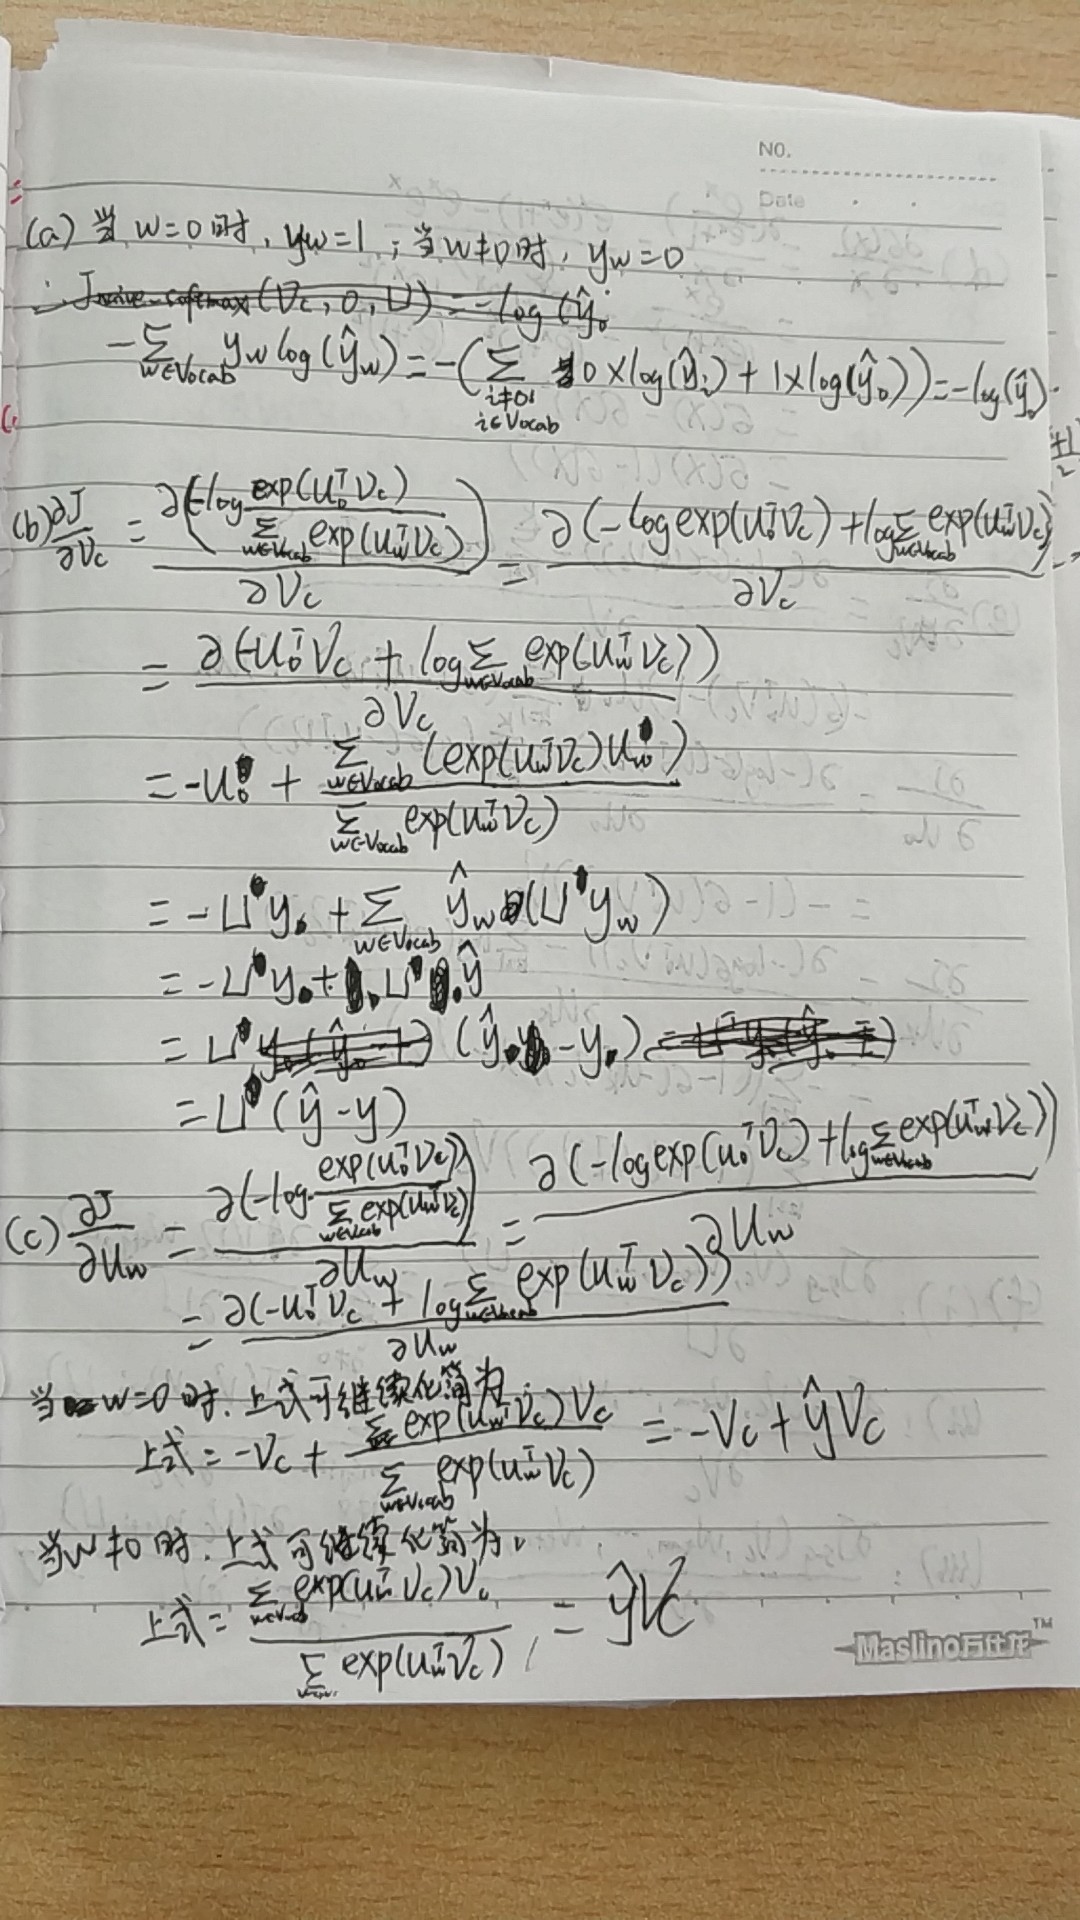 NO.
Date
(a) 当 w=o 时, yw=1; 当 w≠o 时, yw=0
-∑_{w∈Vocab} y_w log(ŷ_w) = -(∑_{i≠o, i∈Vocab} 0×log(ŷ_i) + 1×log(ŷ_o)) = -log(ŷ_o).
(b) ∂J/∂V_c = ∂(-log exp(u_o^T V_c) / ∑_{w∈Vocab} exp(u_w^T V_c)) / ∂V_c = ∂(-log exp(u_o^T V_c) + log∑_{w∈Vocab} exp(u_w^T V_c)) / ∂V_c
= ∂(-u_o^T V_c + log∑_{w∈Vocab} exp(u_w^T V_c)) / ∂V_c
= -u_o + ∑_{w∈Vocab} (exp(u_w^T V_c) u_w) / ∑_{w∈Vocab} exp(u_w^T V_c)
= -U y. + ∑_{w∈Vocab} ŷ_w (U y_w)
= -U y. + U ŷ
= U (ŷ - y.)
= U (ŷ - y)
(c) ∂J/∂u_w = ∂(-log exp(u_o^T V_c) / ∑_{w∈Vocab} exp(u_w^T V_c)) / ∂u_w = ∂(-log exp(u_o^T V_c) + log∑_{w∈Vocab} exp(u_w^T V_c)) / ∂u_w
= ∂(-u_o^T V_c + log∑_{w∈Vocab} exp(u_w^T V_c)) / ∂u_w
当 w=o 时, 上式可继续化简为:
上式 = -V_c + ∑ exp(u_w^T V_c) V_c / ∑_{w∈Vocab} exp(u_w^T V_c) = -V_c + ŷ V_c
当 w≠o 时, 上式可继续化简为,
上式 = ∑_{w∈Vocab} exp(u_w^T V_c) V_c / ∑ exp(u_w^T V_c) = ŷ V_c
Maslino玛仕龙™